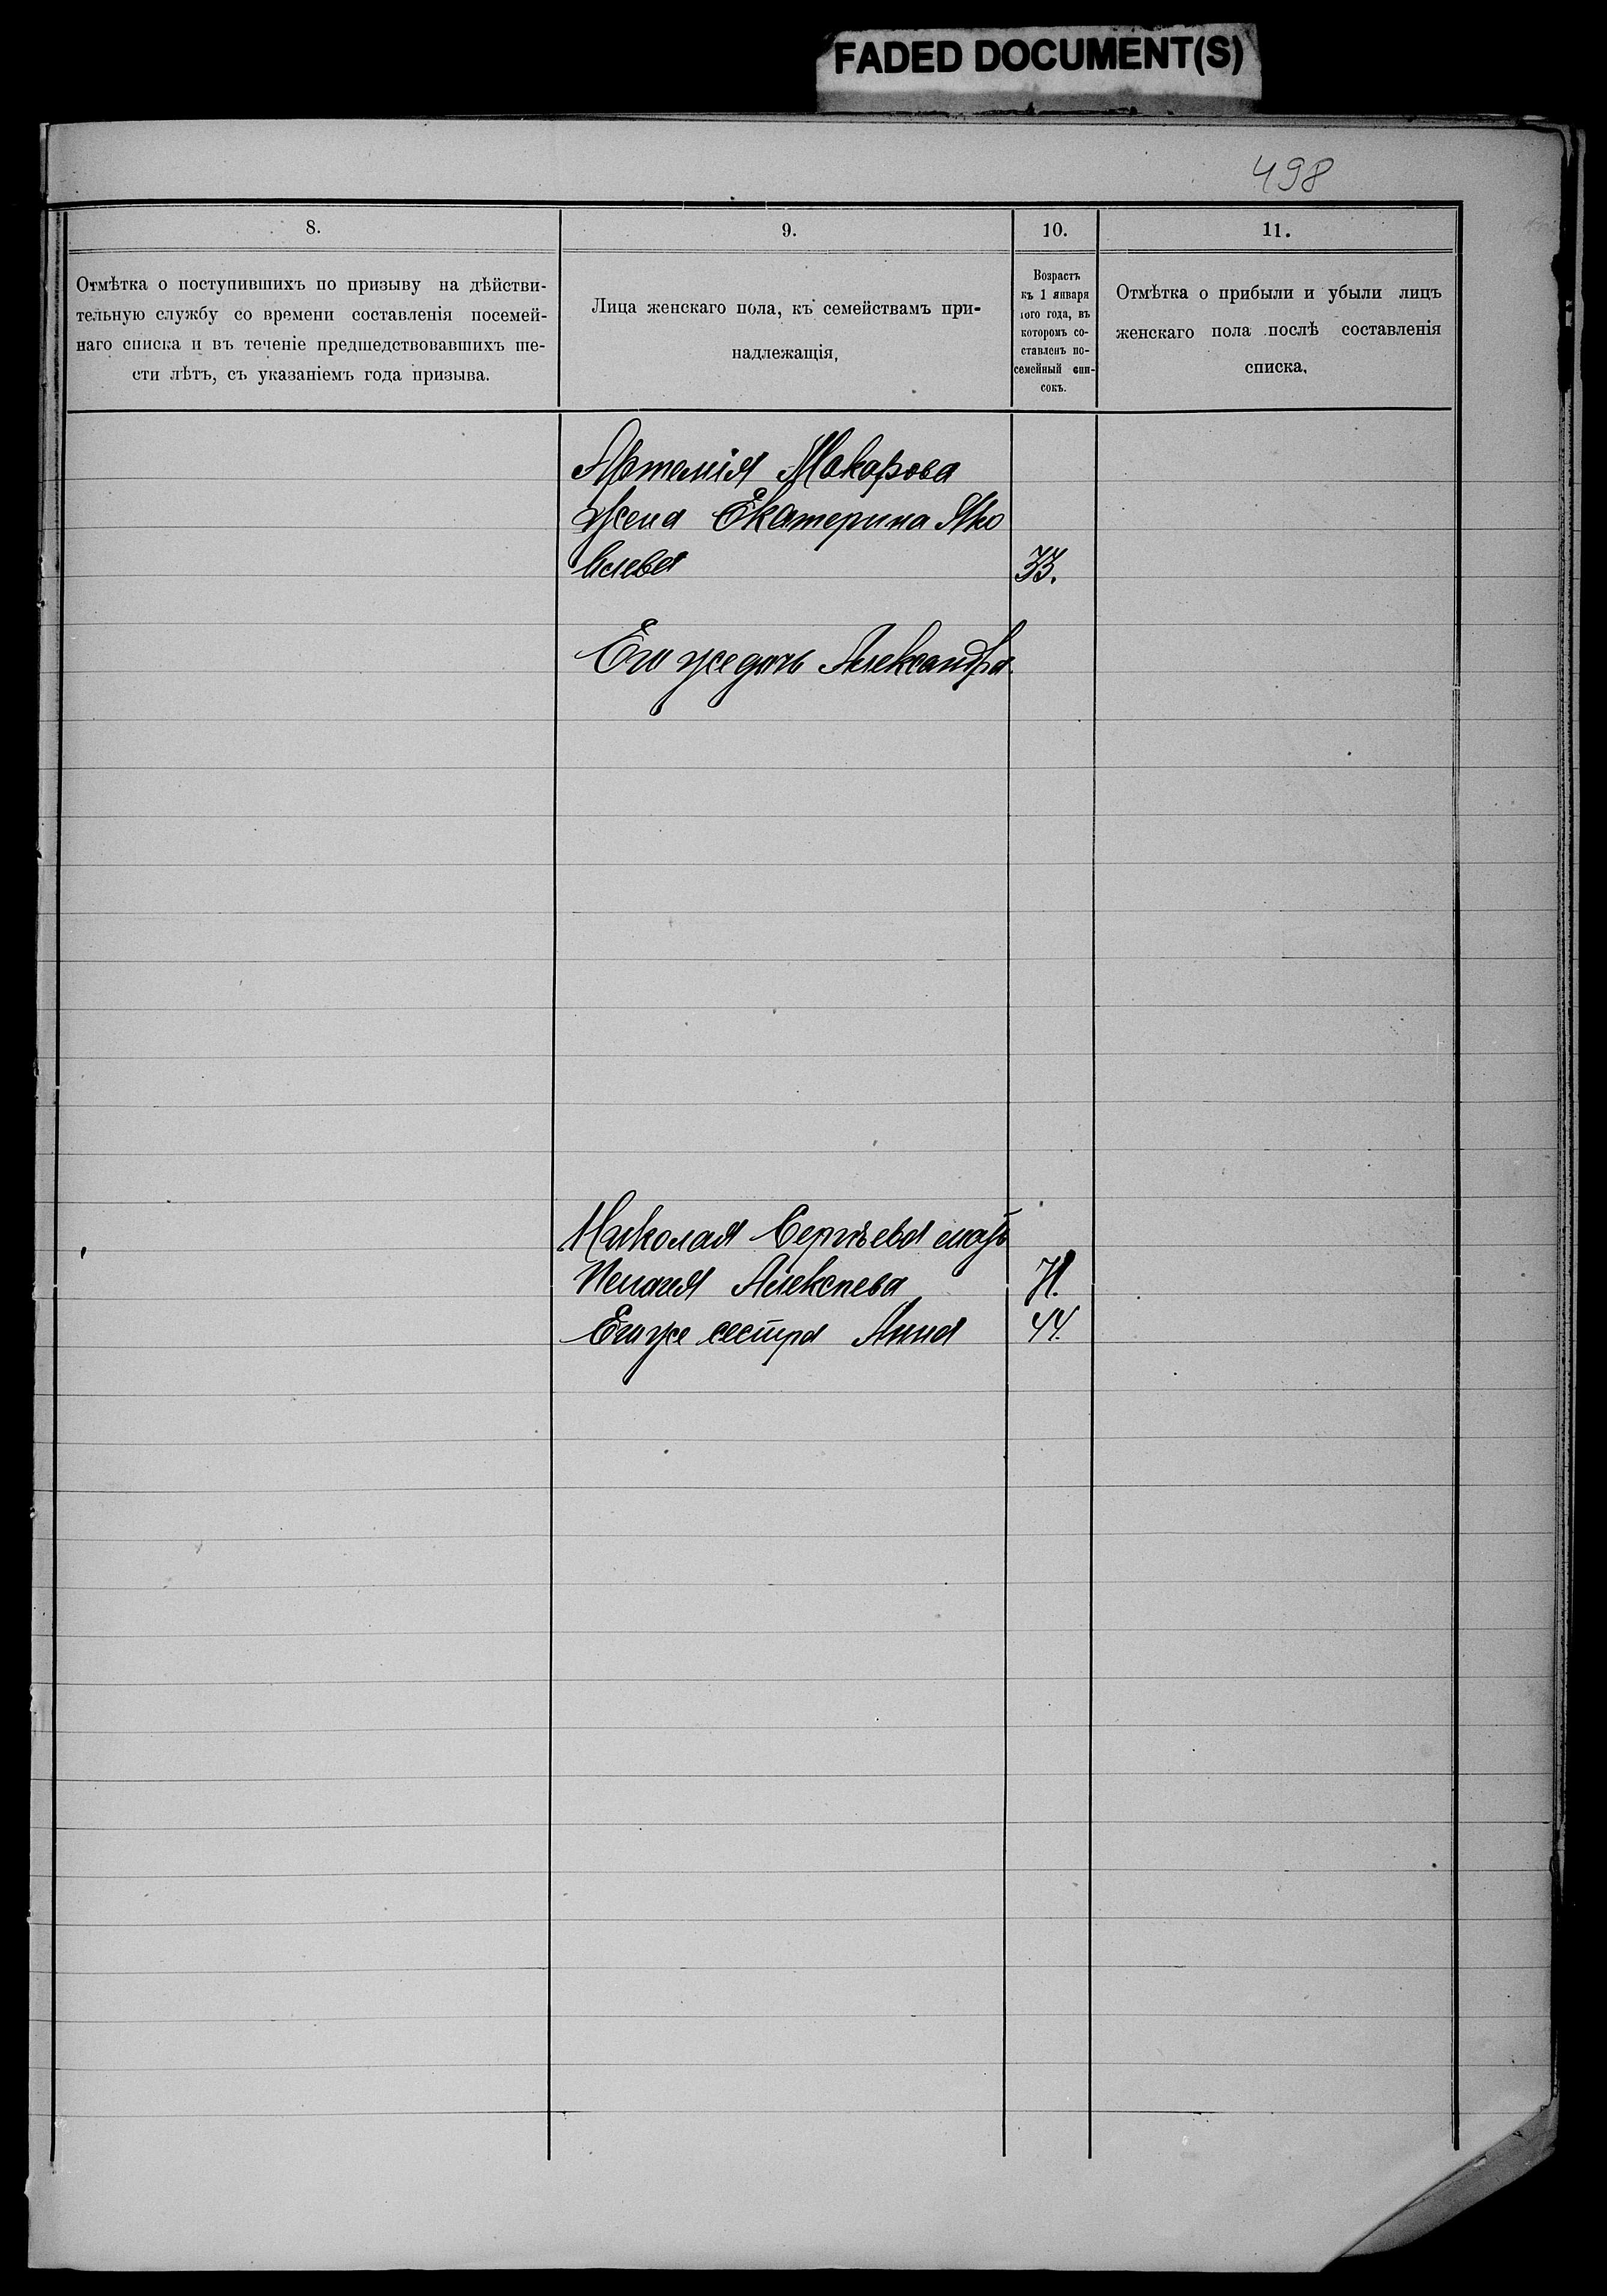 FADED DOCUMENT(S)
498
8.
9.
10.
11.
Отмѣтка о поступившихъ по призыву на дѣйстви-
тельную службу со времени составленія посемей-
наго списка и въ теченіе предшедствовавшихъ ше-
сти лѣтъ, съ указаніемъ года призыва.
Лица женскаго пола, къ семействамъ при-
надлежащія,
Возрастъ
къ 1 января
того года, въ
которомъ со-
ставленъ по-
семейный спи-
сокъ.
Отмѣтка о прибыли и убыли лицъ
женскаго пола послѣ составленія
списка,
Артемія Макарова
жена Екатерина Яко
влева 33.
Его же дочь Александра.
Николая Сергѣева мать
Пелагия Алексѣева 71.
Его же сестра Анна 44.